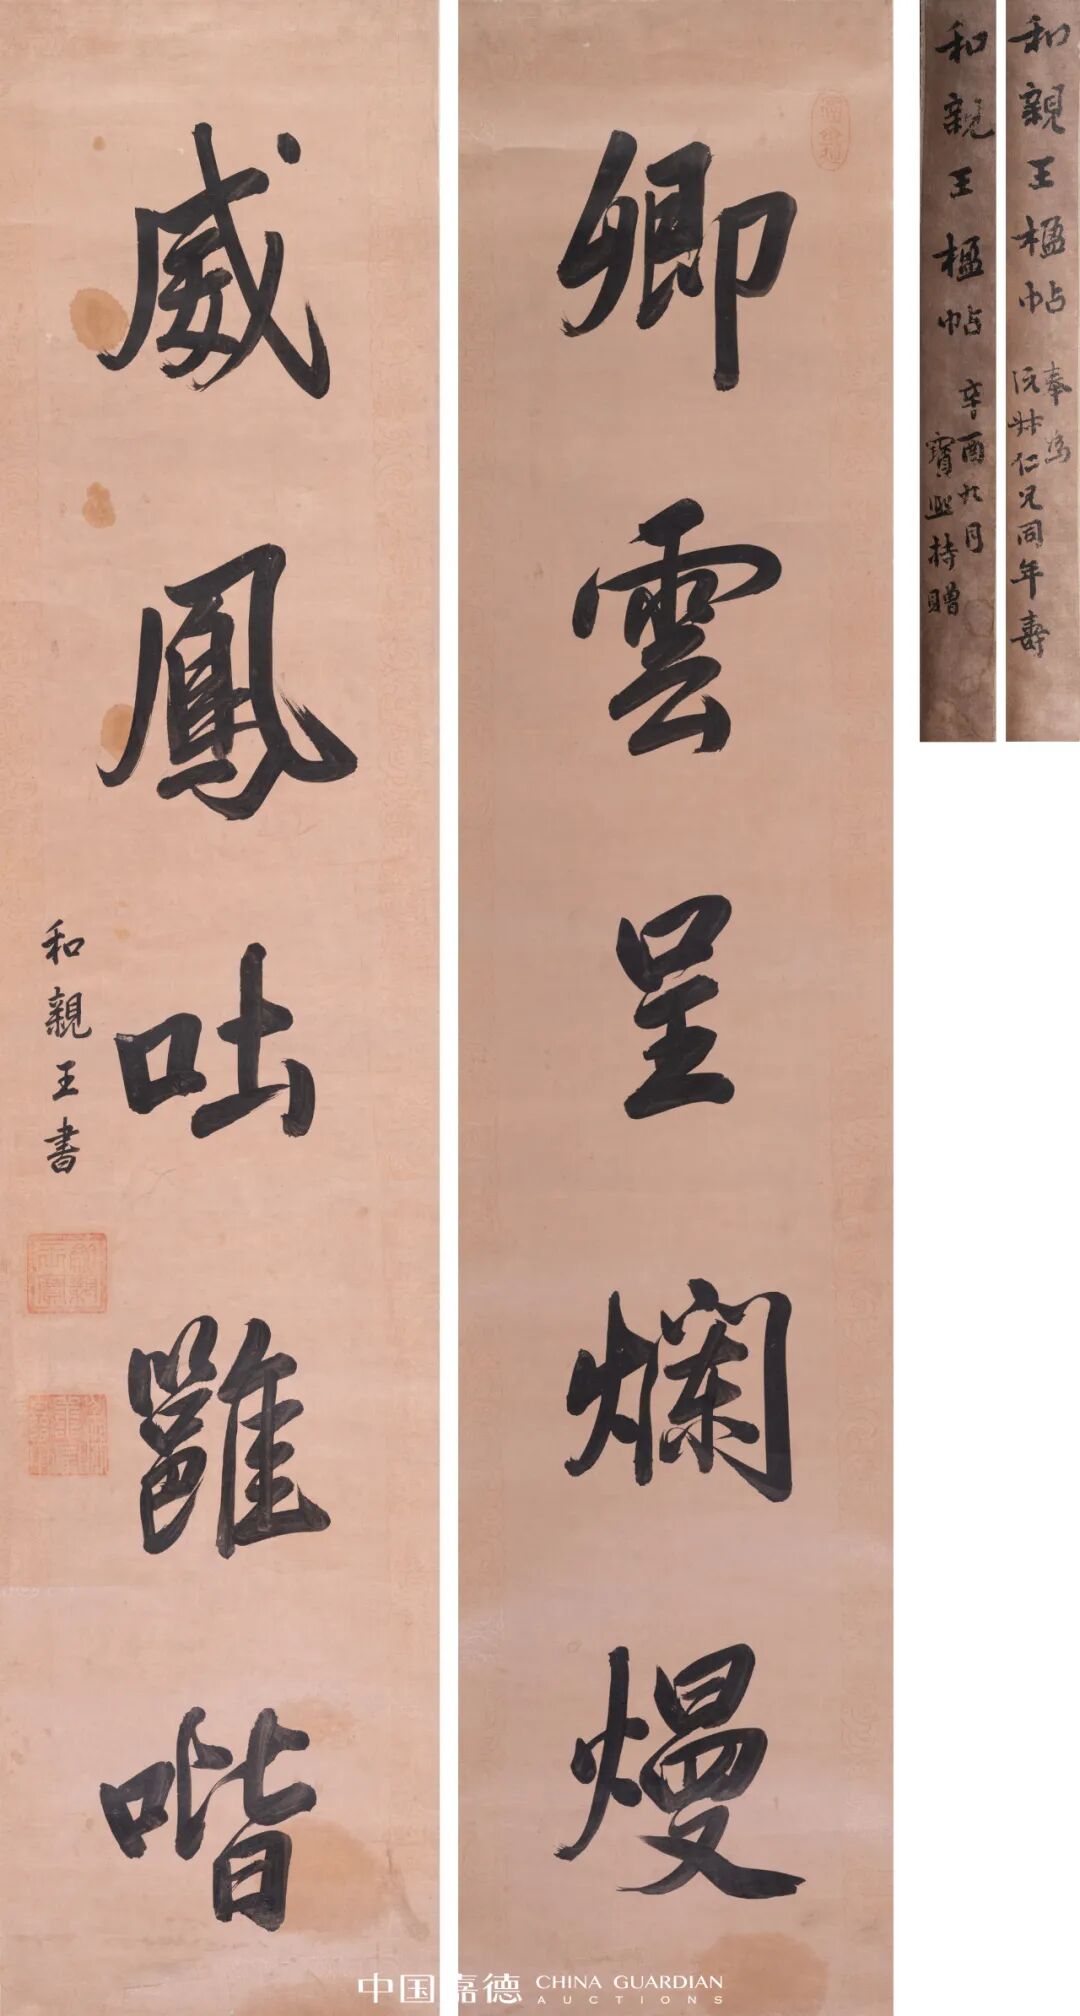 卿雲呈爛熳
威鳳吐雝喈
和親王書
和親王楹帖
奉為
沅叔仁兄同年壽
和親王楹帖
辛酉九月
寶熙持贈
中国嘉德 CHINA GUARDIAN
AUCTIONS